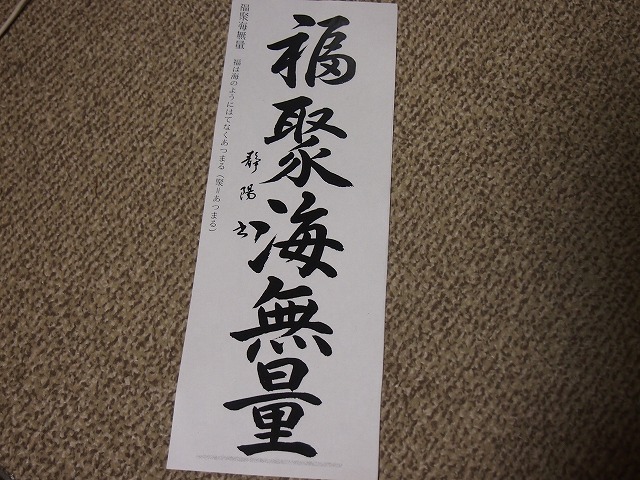 福聚海無量
静陽書
福聚海無量　福は海のようにはてなくあつまる（聚＝あつまる）